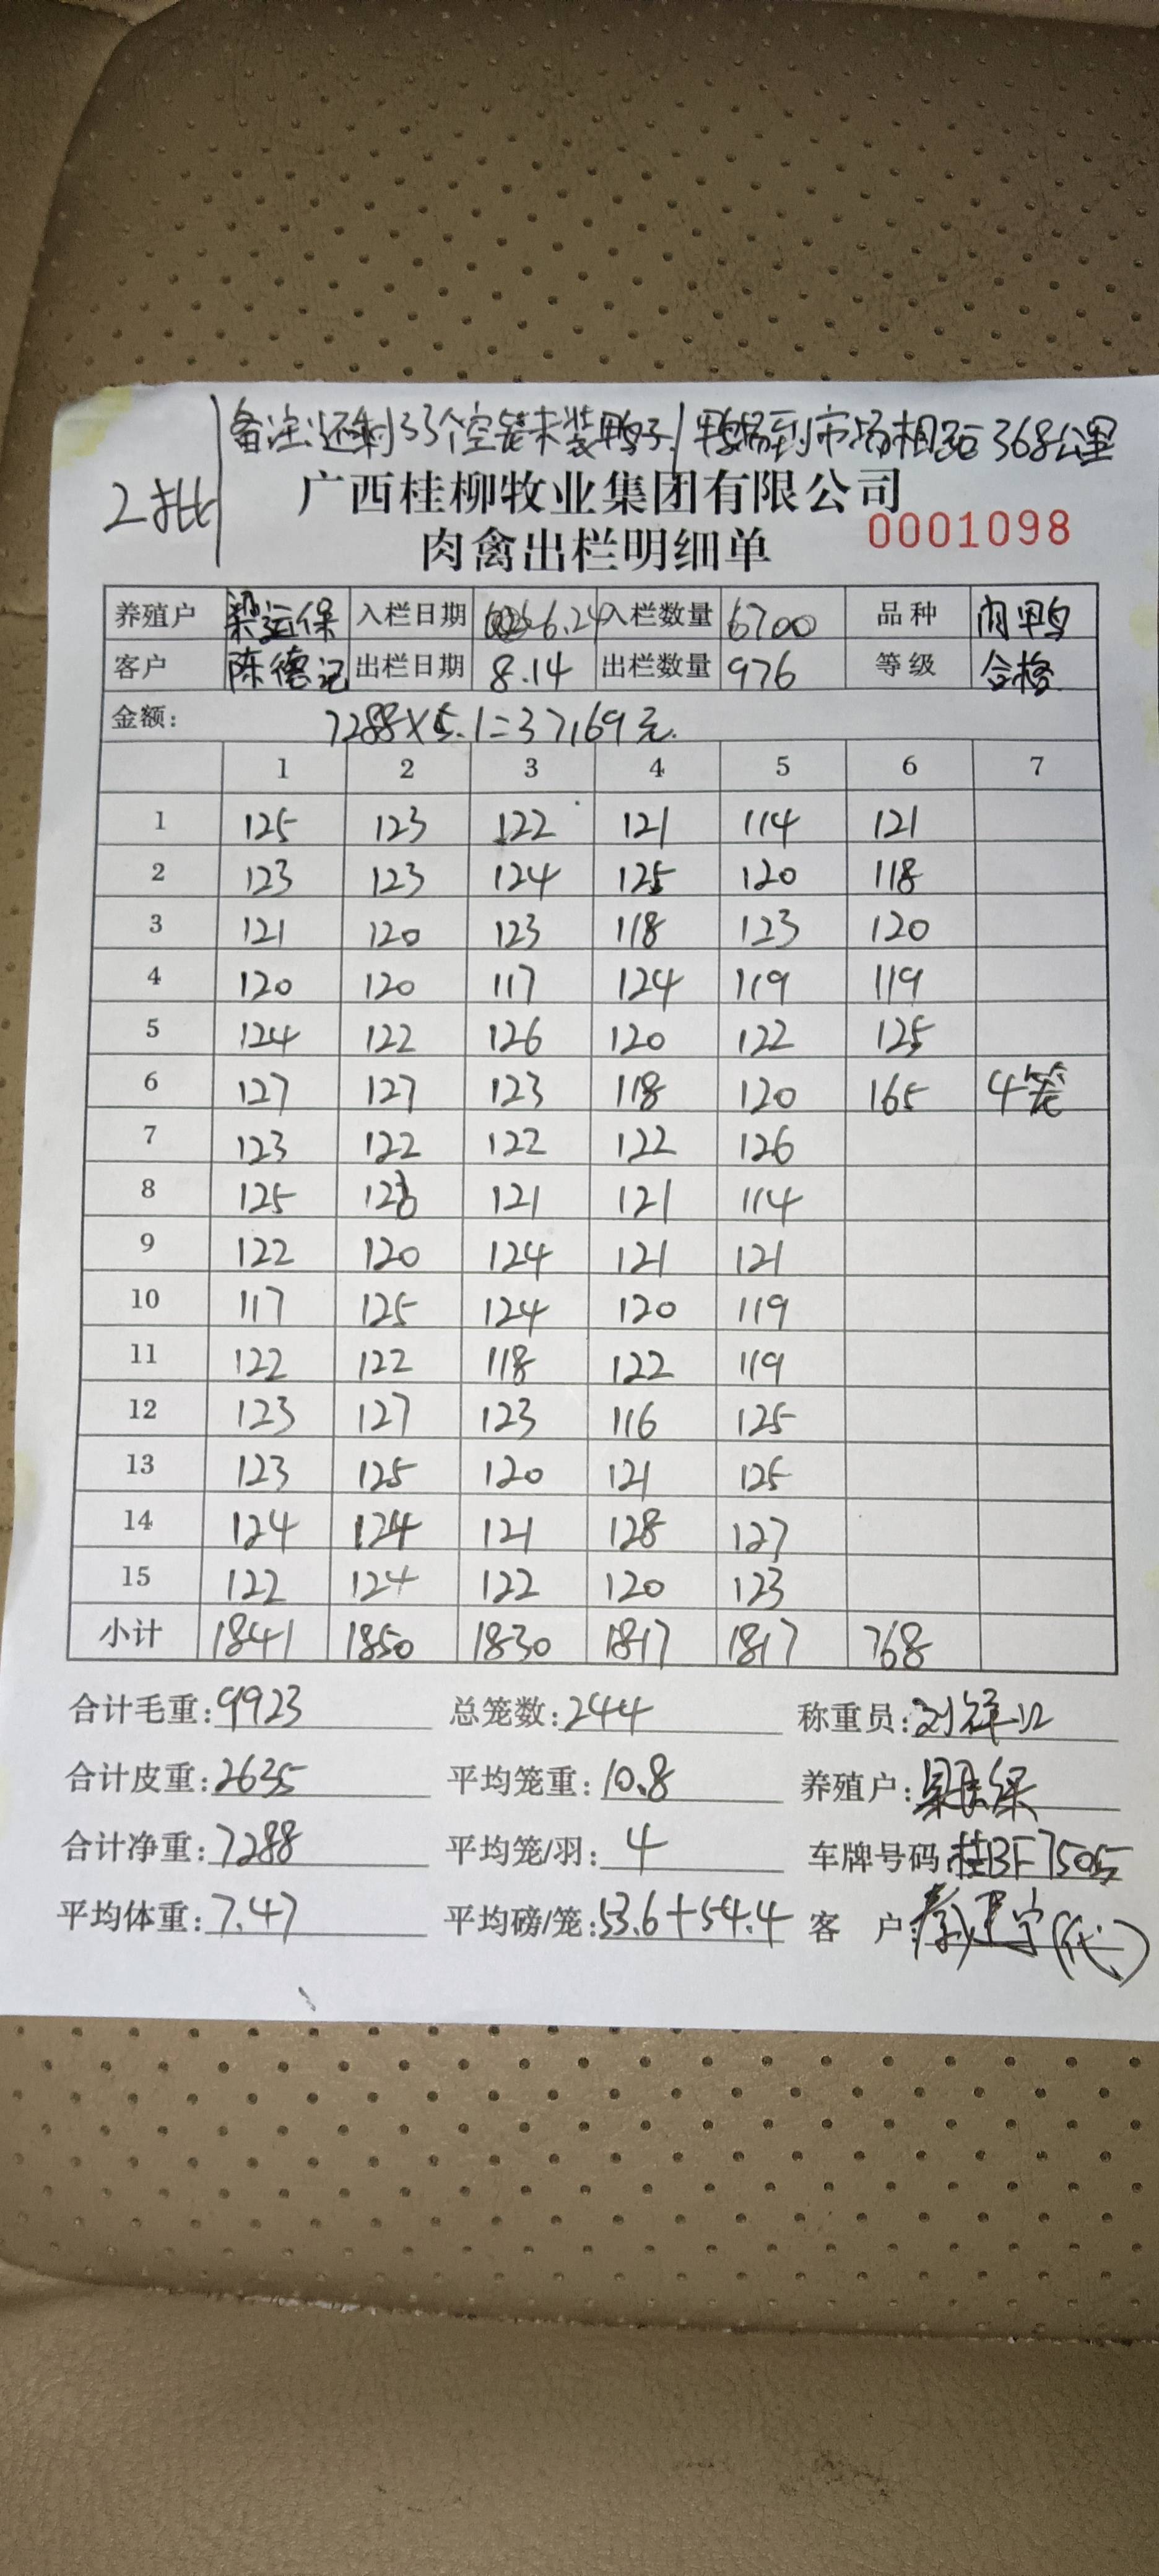 备注:还剩33个空笼未装鸭子/鸭场到市场相距368公里
2批
广西桂柳牧业集团有限公司
肉禽出栏明细单
0001098
养殖户 梁运保 入栏日期 6.24 入栏数量 6700 品种 肉鸭
客户 陈德记 出栏日期 8.14 出栏数量 976 等级 合格
金额: 7288×5.1=37169元.
1 2 3 4 5 6 7
1 125 123 122 121 114 121
2 123 123 124 125 120 118
3 121 120 123 118 123 120
4 120 120 117 124 119 119
5 124 122 126 120 122 125
6 127 127 123 118 120 165 4笼
7 123 122 122 122 126
8 125 126 121 121 114
9 122 120 124 121 121
10 117 125 124 120 119
11 122 122 118 122 119
12 123 127 123 116 125
13 123 125 120 121 125
14 124 124 121 128 127
15 122 124 122 120 123
小计 1841 1850 1830 1817 1817 768
合计毛重:9923 总笼数:244 称重员:
合计皮重:2635 平均笼重:10.8 养殖户:梁运保
合计净重:7288 平均笼/羽:4 车牌号码:桂BF7505
平均体重:7.47 平均磅/笼:53.6+54.4 客 户:秦建宁(代)